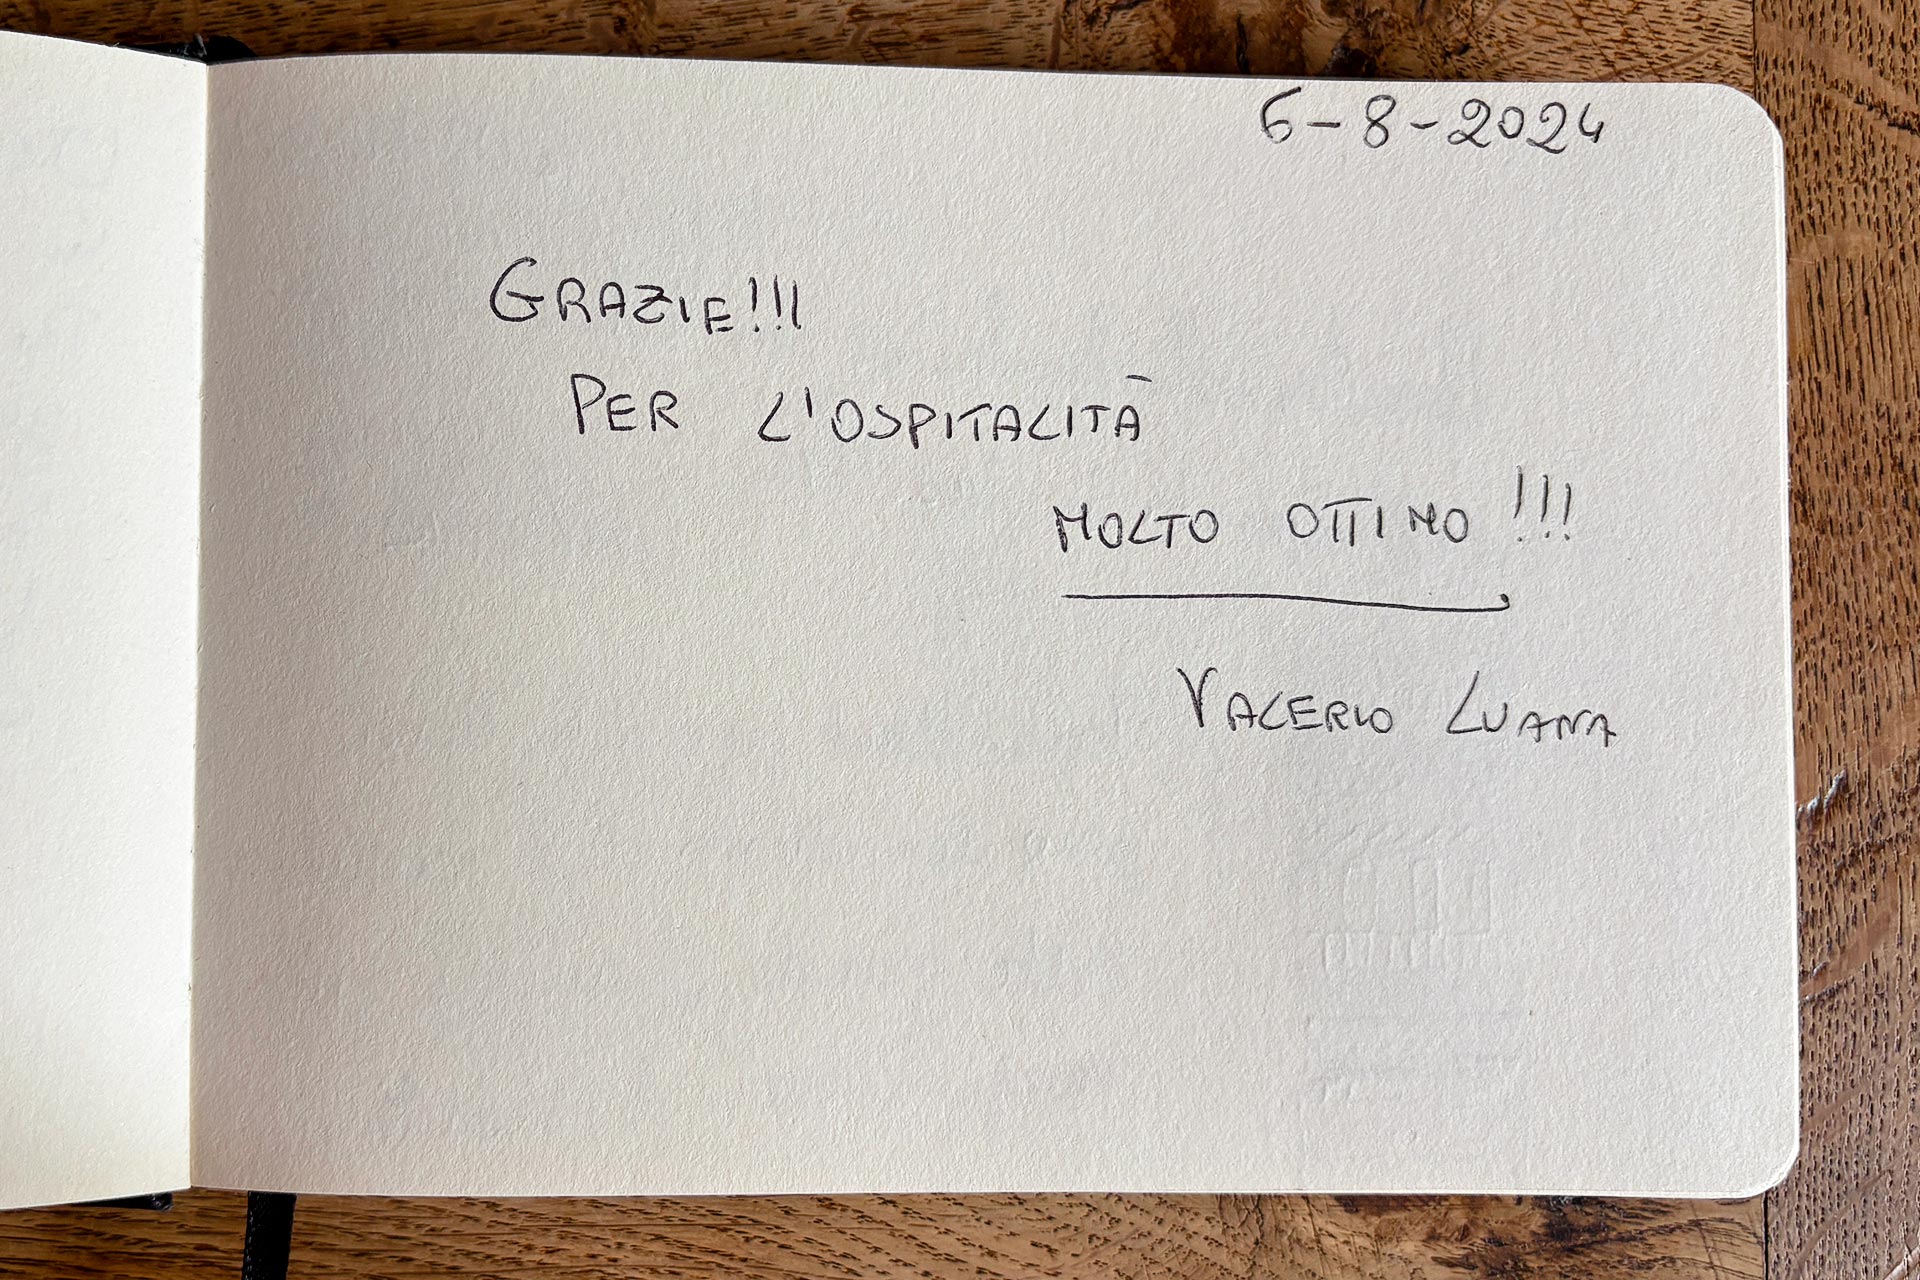 6-8-2024
GRAZIE!!!
PER L'OSPITALITÀ
MOLTO OTTIMO!!!
VALERIO LUANA